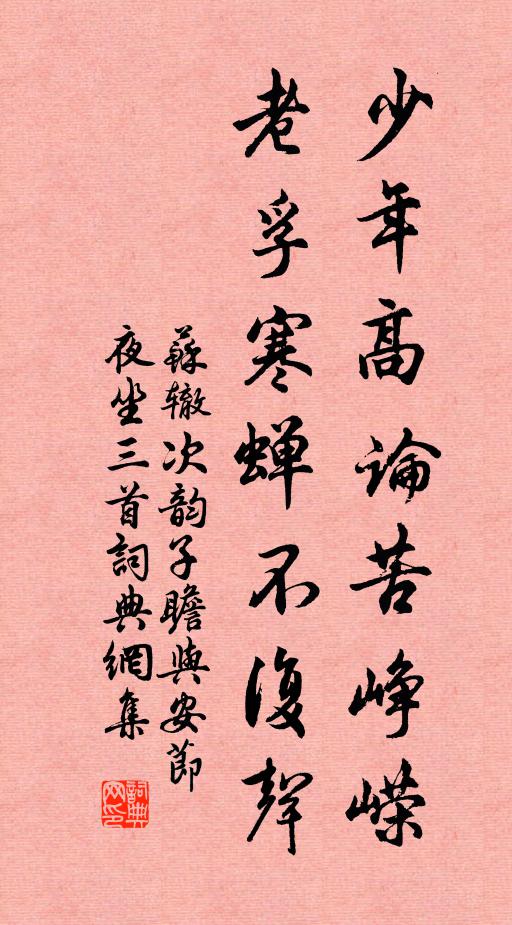 少年高論苦峥嶸
老孚寒蝉不復聲
蘇辙次韵子瞻與安節
夜坐三首詞典網集
詞典网印